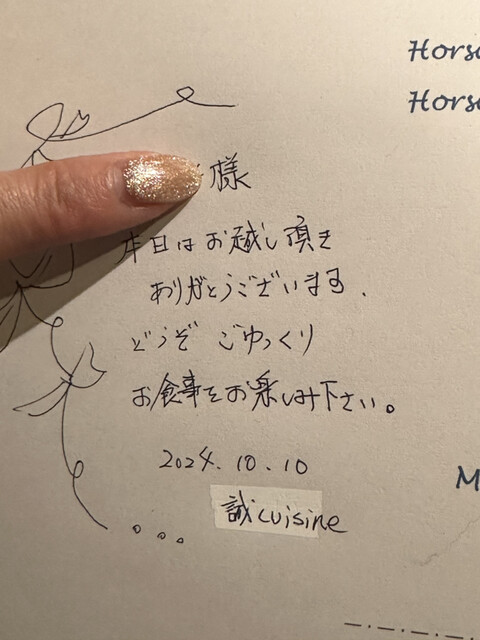 Hors
Hors
様
本日はお越し頂き
ありがとうございます.
どうぞ ごゆっくり
お食事をお楽しみ下さい。
2024.10.10
誠cuisine
M